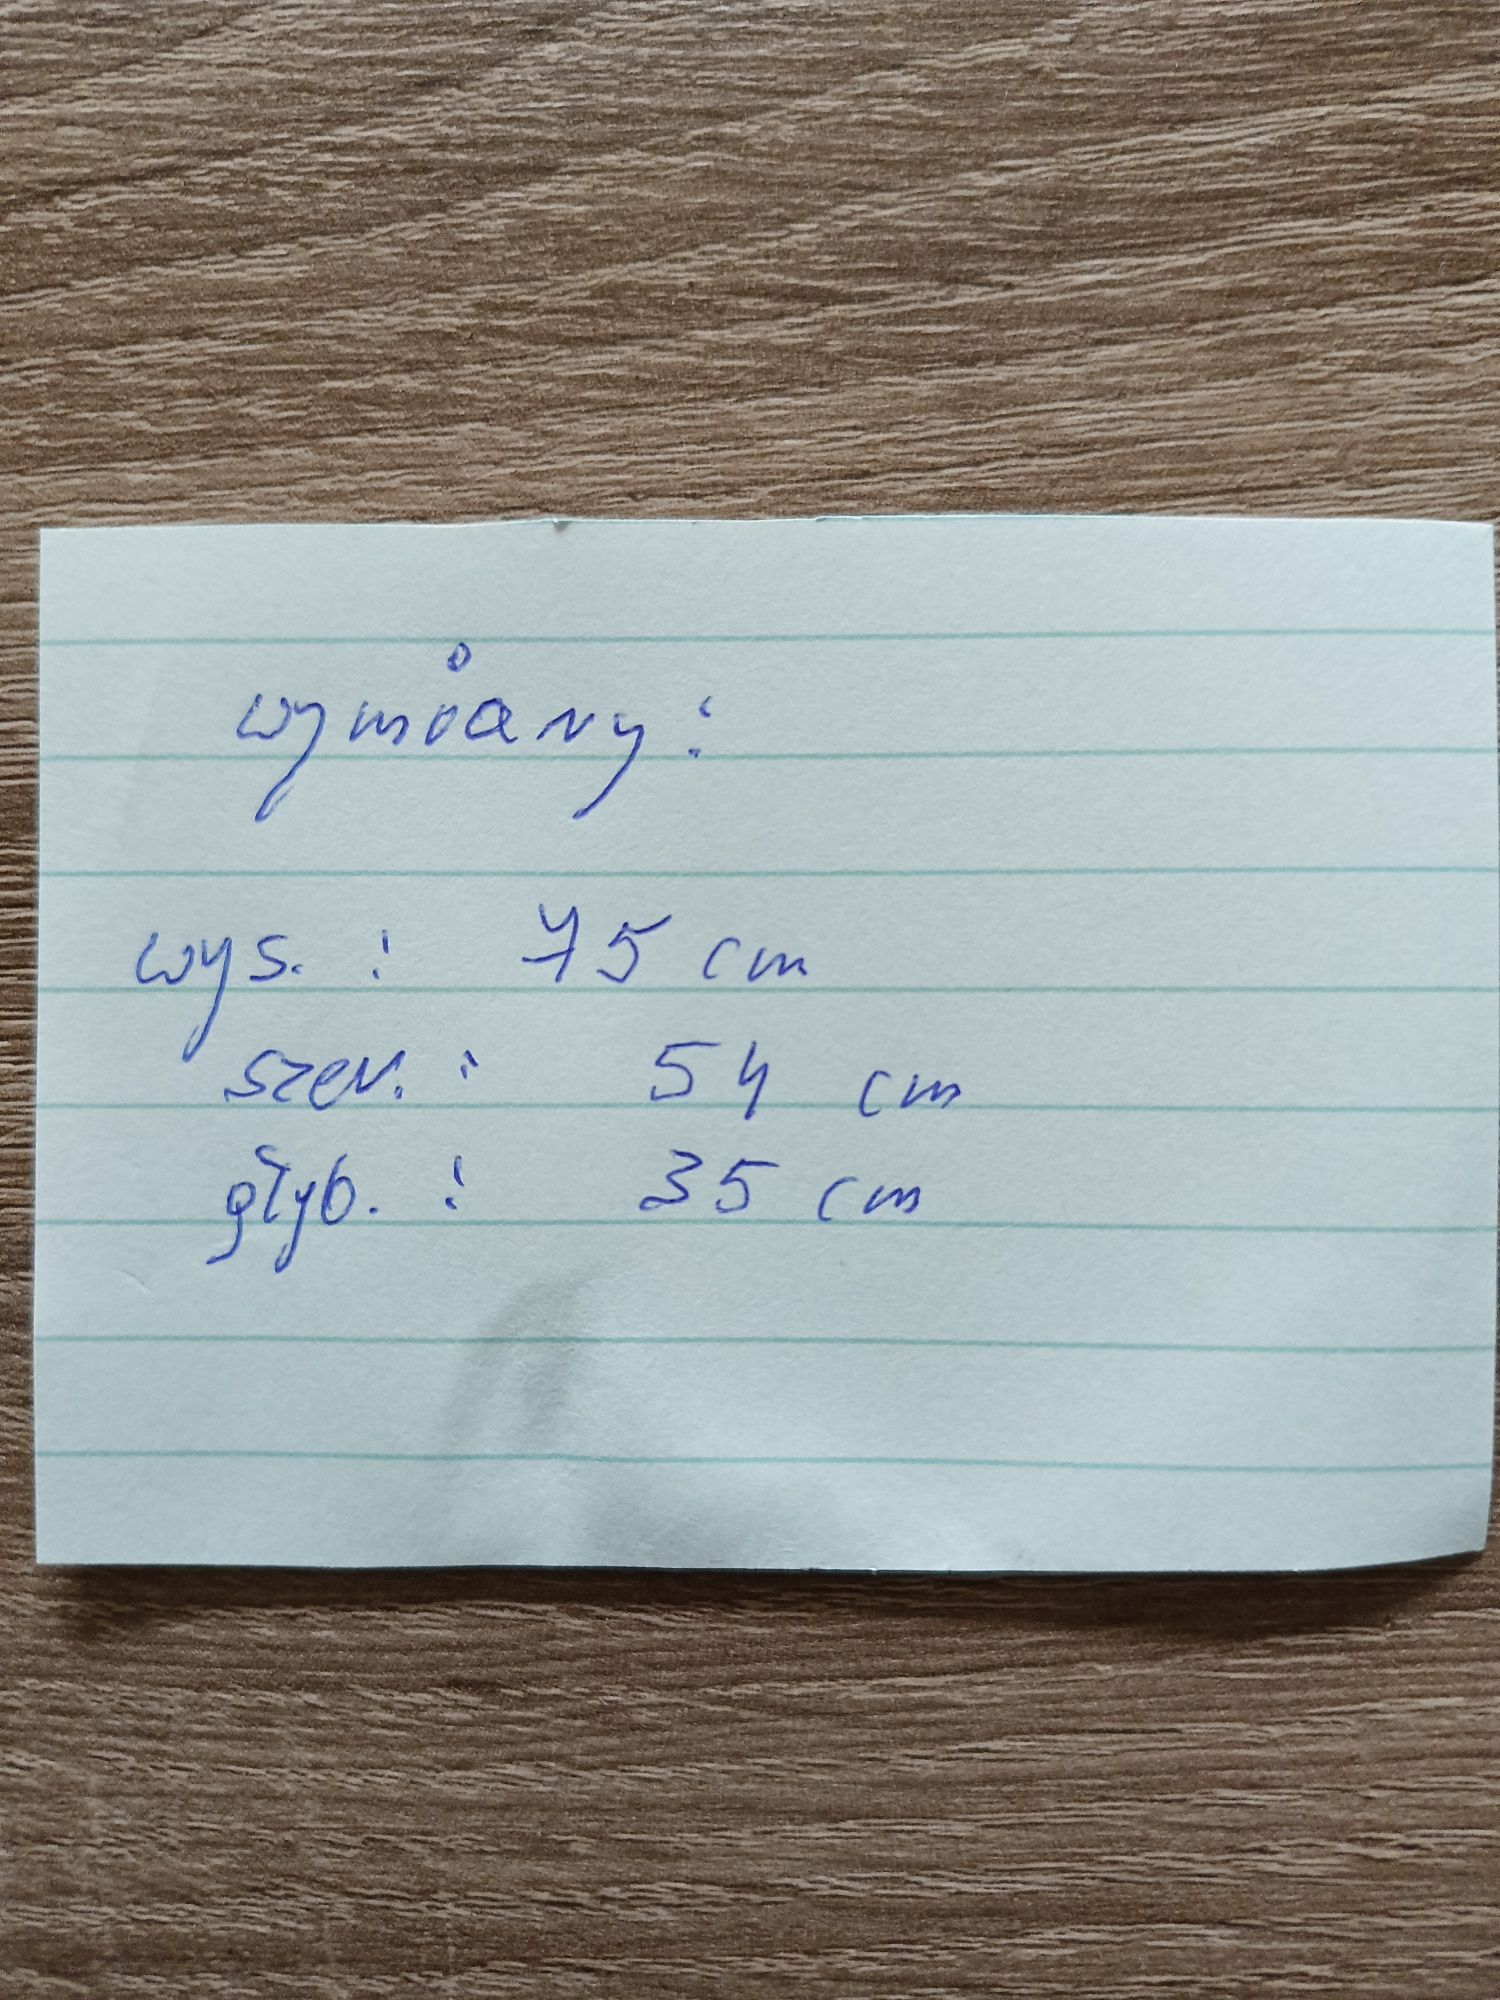 wymiany:
wys. : 75 cm
szer. : 54 cm
głyb. : 35 cm